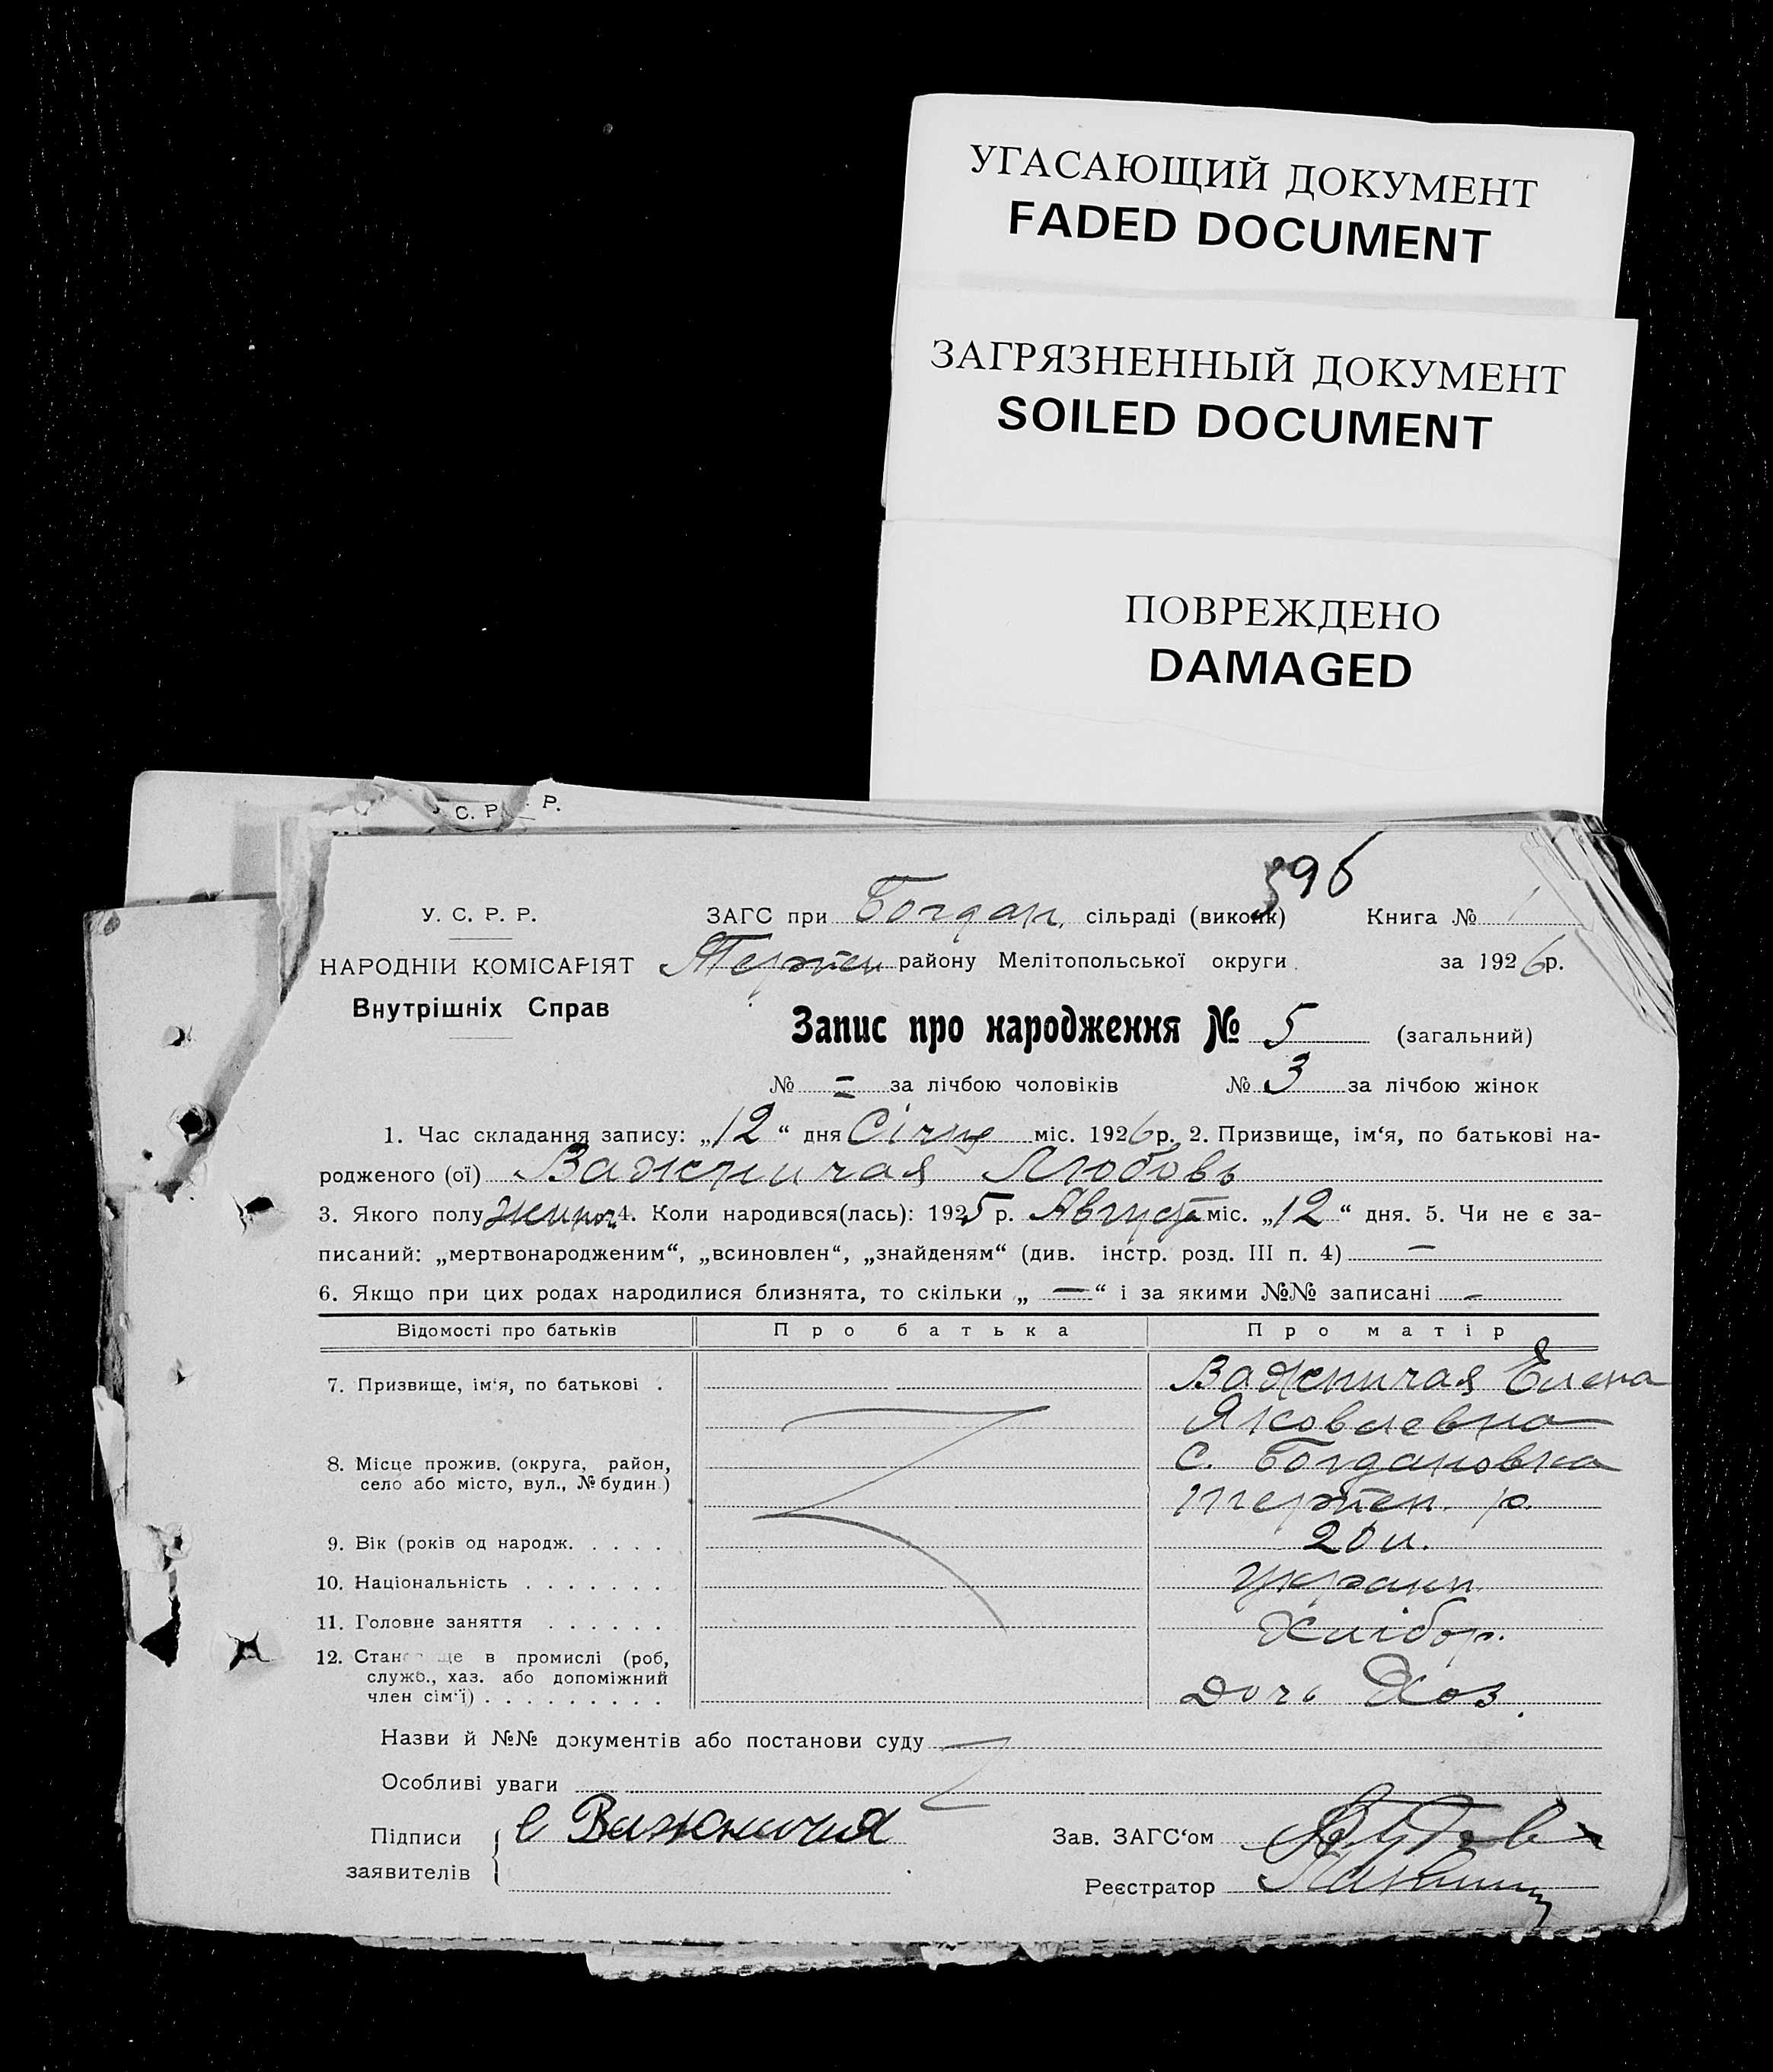 УГАСАЮЩИЙ ДОКУМЕНТ
FADED DOCUMENT
ЗАГРЯЗНЕННЫЙ ДОКУМЕНТ
SOILED DOCUMENT
ПОВРЕЖДЕНО
DAMAGED
С. Р. Р.
396
У. С. Р. Р.
НАРОДНІЙ КОМІСАРІЯТ
Внутрішніх Справ
ЗАГС при Богдан. сільраді (виконк) Книга № 1
Терпен району Мелітопольської округи. за 1926 р.
Запис про народження № 5 (загальний)
№ = за лічбою чоловіків № 3 за лічбою жінок
1. Час складання запису: „12“ дня Січня міс. 1926 р. 2. Призвище, ім‘я, по батькові на-
родженого (ої) Важничая Любовь
3. Якого полу 4. Коли народився(лась): 1925 р. Августа міс. „12“ дня. 5. Чи не є за-
писаний: „мертвонародженим“, „всиновлен“, „знайденям“ (див. інстр. розд. III п. 4) —
6. Якщо при цих родах народилися близнята, то скільки „ — “ і за якими №№ записані —
Відомості про батьків Про батька Про матір
7. Призвище, ім‘я, по батькові . Важничая Елена
Яковлевна
8. Місце прожив. (округа, район, с. Богдановка
село або місто, вул., № будин.) терпен. р.
9. Вік (років од народж. . . . . 20 л.
10. Національність . . . . . . . Украин
11. Головне заняття . . . . . . Хлібор.
12. Стан ще в промислі (роб,
служб., хаз. або допоміжний
член сім‘ї) . . . . . . . . . Доч Хоз.
Назви й №№ документів або постанови суду
Особливі уваги
Підписи е Важничия Зав. ЗАГС‘ом
заявителів Реєстратор